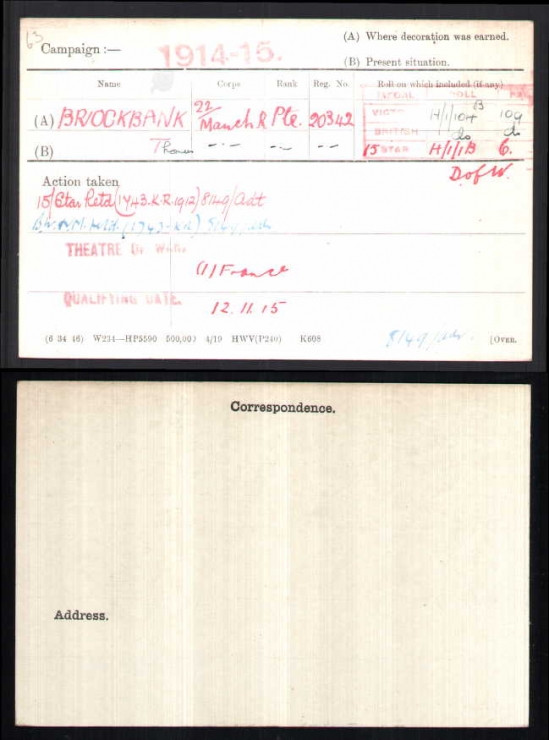 63
(A) Where decoration was earned.
Campaign :— 1914-15.
(B) Present situation.
Name Corps Rank Reg. No. Roll on which included (if any)
ROLL
(A) BROCKBANK 22/Manch R Pte. 20342 VICTO H/1/104 B 109
BRITISH do do
(B) Thomas 15 STAR H/1/1B 6.
D of W.
Action taken
15/Star Retd (1743.K.R.1912) 8149/adt
THEATRE OF WAR.
(1) France
QUALIFYING DATE. 12.11.15
(6 34 46) W234—HP5590 500,000 4/19 HWV(P240) K608 [OVER.
Correspondence.
Address.